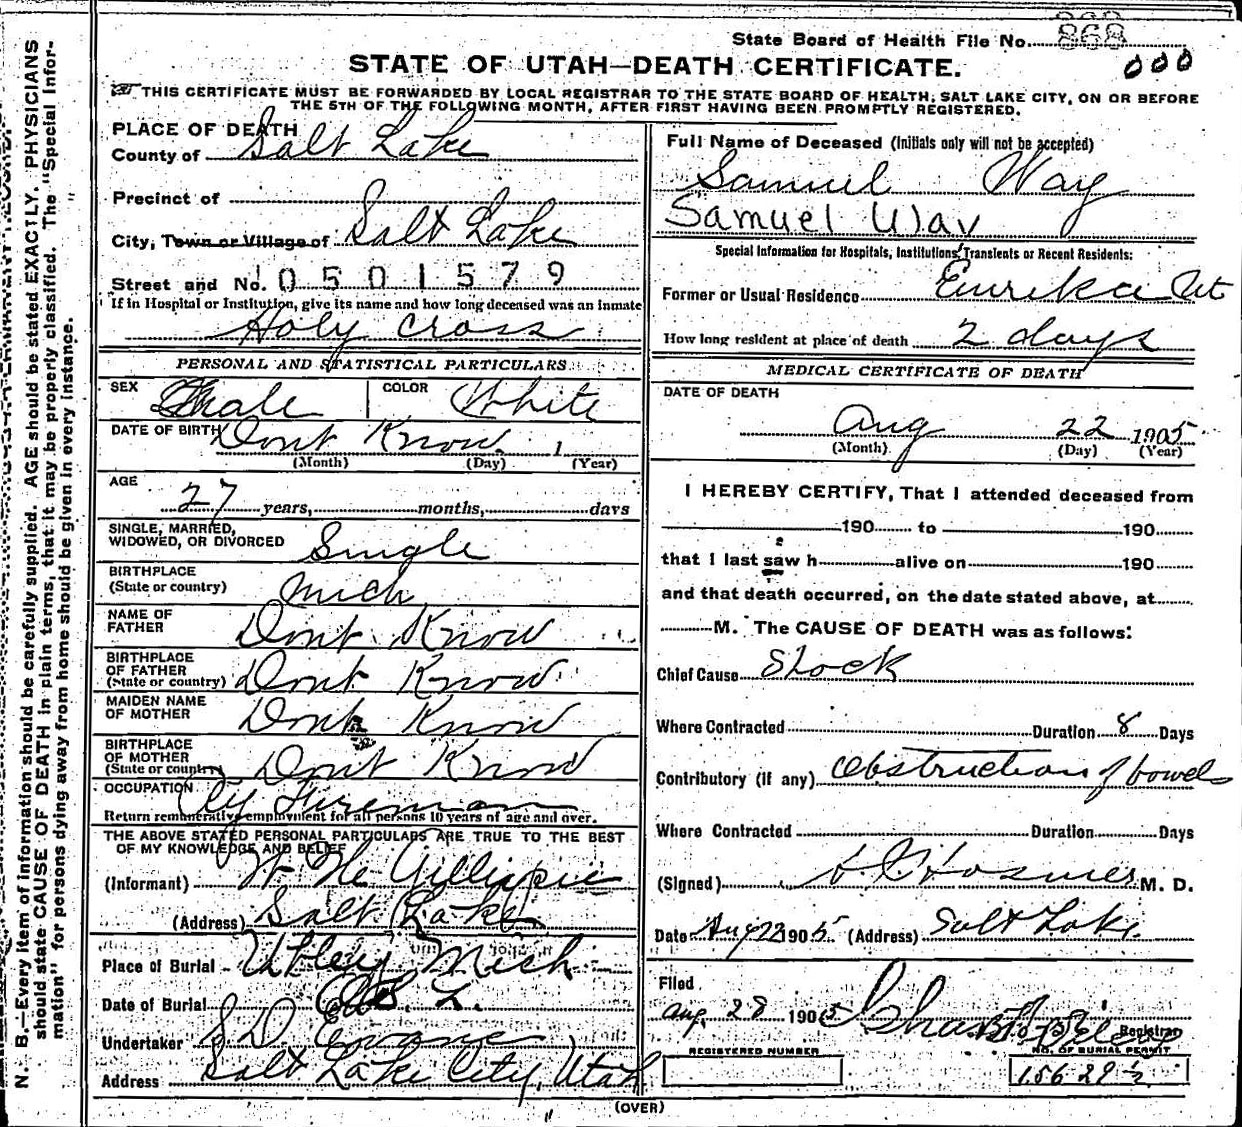 State Board of Health File No. 868
000
STATE OF UTAH—DEATH CERTIFICATE.
THIS CERTIFICATE MUST BE FORWARDED BY LOCAL REGISTRAR TO THE STATE BOARD OF HEALTH, SALT LAKE CITY, ON OR BEFORE
THE 5TH OF THE FOLLOWING MONTH, AFTER FIRST HAVING BEEN PROMPTLY REGISTERED.
PLACE OF DEATH
County of Salt Lake
Precinct of
City, Town or Village of Salt Lake
Street and No. 0501579
If in Hospital or Institution, give its name and how long deceased was an inmate
Holy Cross
PERSONAL AND STATISTICAL PARTICULARS
SEX Male COLOR White
DATE OF BIRTH Dont Know. 1
(Month) (Day) (Year)
AGE
27 years, months, days
SINGLE, MARRIED,
WIDOWED, OR DIVORCED Single
BIRTHPLACE
(State or country) Mich
NAME OF
FATHER Dont Know
BIRTHPLACE
OF FATHER
(State or country) Dont Know
MAIDEN NAME
OF MOTHER Dont Know
BIRTHPLACE
OF MOTHER
(State or country) Dont Know
OCCUPATION Ry Fireman
Return remunerative employment for all persons 10 years of age and over.
THE ABOVE STATED PERSONAL PARTICULARS ARE TRUE TO THE BEST
OF MY KNOWLEDGE AND BELIEF
(Informant) Gillispie
(Address) Salt Lake
Place of Burial Utley Mich
Date of Burial
Undertaker S D Evans
Address Salt Lake City, Utah
Full Name of Deceased (Initials only will not be accepted)
Samuel Way
Samuel Way
Special Information for Hospitals, Institutions, Transients or Recent Residents:
Former or Usual Residence Eureka Ut
How long resident at place of death 2 days
MEDICAL CERTIFICATE OF DEATH
DATE OF DEATH
Aug 22 1905
(Month) (Day) (Year)
I HEREBY CERTIFY, That I attended deceased from
190 to 190
that I last saw h alive on 190
and that death occurred, on the date stated above, at
M. The CAUSE OF DEATH was as follows:
Chief Cause Shock
Where Contracted Duration 8 Days
Contributory (if any) Obstruction of bowels
Where Contracted Duration Days
(Signed) Hosmer M. D.
Date Aug 23 1905. (Address) Salt Lake
Filed
Aug. 28 1905
Registrar
REGISTERED NUMBER
NO. OF BURIAL PERMIT
15629½
(OVER)
N. B.—Every item of information should be carefully supplied. AGE should be stated EXACTLY. PHYSICIANS
should state CAUSE OF DEATH in plain terms, that it may be properly classified. The "Special Infor-
mation" for persons dying away from home should be given in every instance.